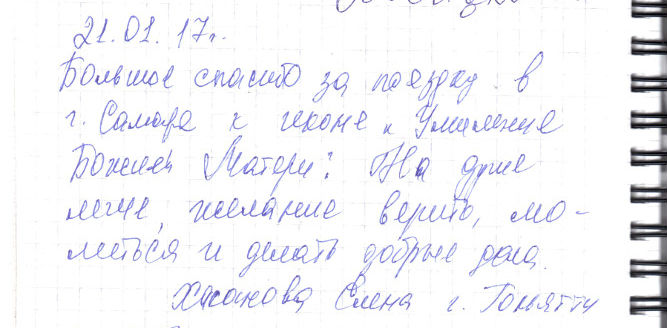 21.01.17г.
Большое спасибо за поездку в
г. Самара к иконе "Умиление
Божией Матери". На душе
легче, желание верить, мо-
литься и делать добрые дела.
Хасанова Елена г. Тольятти